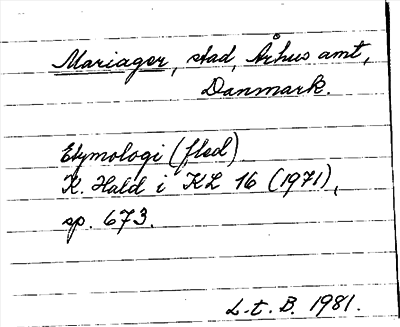 Mariager, stad, Århus amt,
Danmark.
Etymologi (fled)
K. Hald i KL 16 (1971),
sp. 673.
L.t.B. 1981.